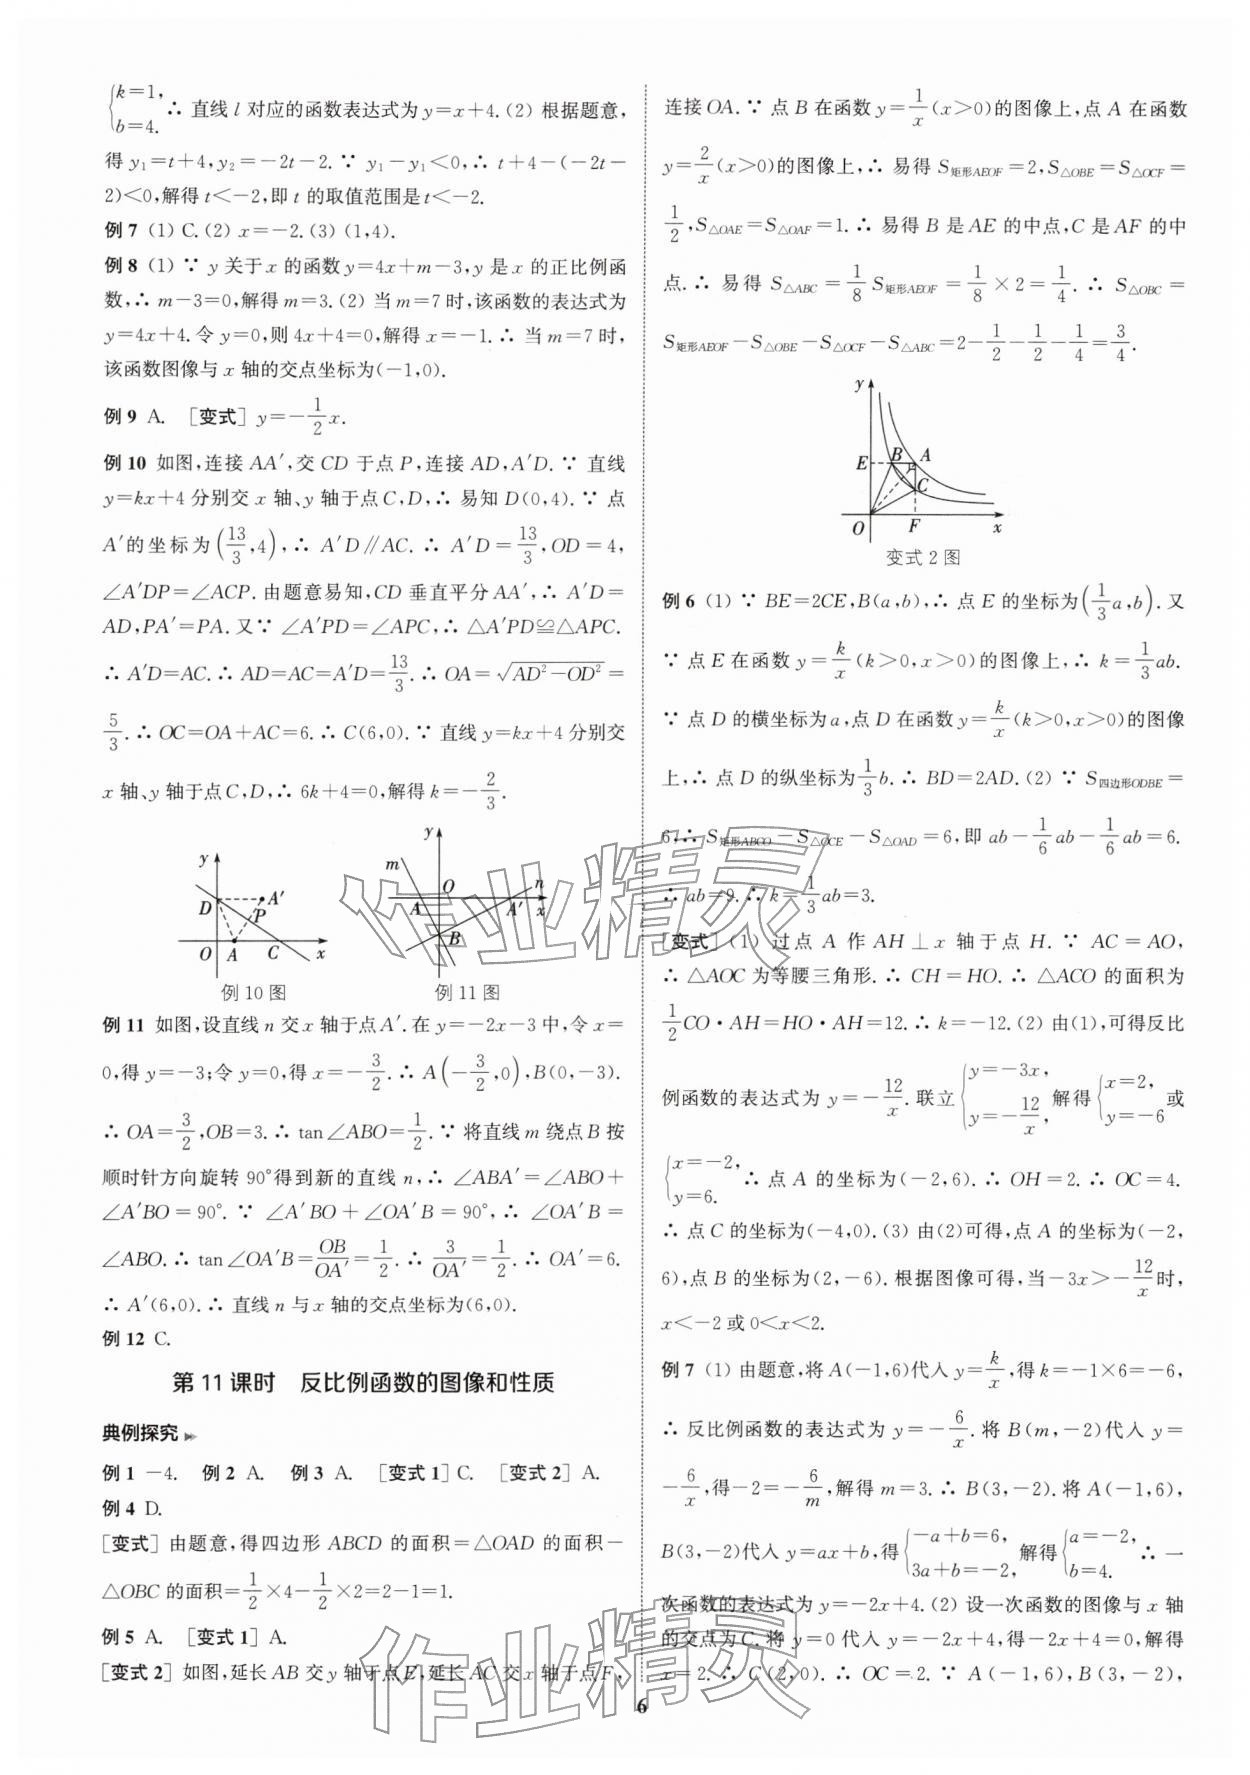 {k=1, b=4. ∴ 直线 l 对应的函数表达式为 y=x+4.(2) 根据题意,
得 y₁=t+4,y₂=-2t-2.∵ y₁-y₁<0,∴ t+4-(-2t-
2)<0,解得 t<-2,即 t 的取值范围是 t<-2.
例 7 (1) C.(2) x=-2.(3) (1,4).
例 8 (1) ∵ y 关于 x 的函数 y=4x+m-3,y 是 x 的正比例函
数,∴ m-3=0,解得 m=3.(2) 当 m=7 时,该函数的表达式为
y=4x+4.令 y=0,则 4x+4=0,解得 x=-1.∴ 当 m=7 时,
该函数图像与 x 轴的交点坐标为(-1,0).
例 9 A. [变式] y=-1/2 x.
例 10 如图,连接 AA′,交 CD 于点 P,连接 AD,A′D.∵ 直线
y=kx+4 分别交 x 轴、y 轴于点 C,D,∴ 易知 D(0,4).∵ 点
A′的坐标为(13/3,4),∴ A′D∥AC.∴ A′D=13/3,OD=4,
∠A′DP=∠ACP.由题意易知,CD 垂直平分 AA′,∴ A′D=
AD,PA′=PA.又∵ ∠A′PD=∠APC,∴ △A′PD≌△APC.
∴ A′D=AC.∴ AD=AC=A′D=13/3.∴ OA=√(AD²-OD²)=
5/3.∴ OC=OA+AC=6.∴ C(6,0).∵ 直线 y=kx+4 分别交
x 轴、y 轴于点 C,D,∴ 6k+4=0,解得 k=-2/3.
y D A′ P O A C x
y m O n A A′ x B
例 10 图 例 11 图
例 11 如图,设直线 n 交 x 轴于点 A′.在 y=-2x-3 中,令 x=
0,得 y=-3;令 y=0,得 x=-3/2.∴ A(-3/2,0),B(0,-3).
∴ OA=3/2,OB=3.∴ tan∠ABO=1/2.∵ 将直线 m 绕点 B 按
顺时针方向旋转 90°得到新的直线 n,∴ ∠ABA′=∠ABO+
∠A′BO=90°.∵ ∠A′BO+∠OA′B=90°,∴ ∠OA′B=
∠ABO.∴ tan∠OA′B=OB/OA′=1/2.∴ 3/OA′=1/2.∴ OA′=6.
∴ A′(6,0).∴ 直线 n 与 x 轴的交点坐标为(6,0).
例 12 C.
第 11 课时 反比例函数的图像和性质
典例探究
例 1 -4. 例 2 A. 例 3 A. [变式 1] C. [变式 2] A.
例 4 D.
[变式] 由题意,得四边形 ABCD 的面积=△OAD 的面积-
△OBC 的面积=1/2×4-1/2×2=2-1=1.
例 5 A. [变式 1] A.
[变式 2] 如图,延长 AB 交 y 轴于点 E,延长 AC 交 x 轴于点 F,
连接 OA.∵ 点 B 在函数 y=1/x(x>0)的图像上,点 A 在函数
y=2/x(x>0)的图像上,∴ 易得 S矩形AEOF=2,S△OBE=S△OCF=
1/2,S△OAE=S△OAF=1.∴ 易得 B 是 AE 的中点,C 是 AF 的中
点.∴ 易得 S△ABC=1/8 S矩形AEOF=1/8×2=1/4.∴ S△OBC=
S矩形AEOF-S△OBE-S△OCF-S△ABC=2-1/2-1/2-1/4=3/4.
y E B A C O F x
变式 2 图
例 6 (1) ∵ BE=2CE,B(a,b),∴ 点 E 的坐标为(1/3 a,b).又
∵ 点 E 在函数 y=k/x(k>0,x>0)的图像上,∴ k=1/3 ab.
∵ 点 D 的横坐标为 a,点 D 在函数 y=k/x(k>0,x>0)的图像
上,∴ 点 D 的纵坐标为 1/3 b.∴ BD=2AD.(2) ∵ S四边形ODBE=
6,∴ S矩形ABCO-S△OCE-S△OAD=6,即 ab-1/6 ab-1/6 ab=6.
∴ ab=9.∴ k=1/3 ab=3.
[变式] (1) 过点 A 作 AH⊥x 轴于点 H.∵ AC=AO,
∴ △AOC 为等腰三角形.∴ CH=HO.∴ △ACO 的面积为
1/2 CO·AH=HO·AH=12.∴ k=-12.(2) 由(1),可得反比
例函数的表达式为 y=-12/x.联立{y=-3x, y=-12/x, 解得{x=2, y=-6 或
{x=-2, y=6. ∴ 点 A 的坐标为(-2,6).∴ OH=2.∴ OC=4.
∴ 点 C 的坐标为(-4,0).(3) 由(2)可得,点 A 的坐标为(-2,
6),点 B 的坐标为(2,-6).根据图像可得,当-3x>-12/x时,
x<-2 或 0<x<2.
例 7 (1) 由题意,将 A(-1,6)代入 y=k/x,得 k=-1×6=-6,
∴ 反比例函数的表达式为 y=-6/x.将 B(m,-2)代入 y=
-6/x,得-2=-6/m,解得 m=3.∴ B(3,-2).将 A(-1,6),
B(3,-2)代入 y=ax+b,得{-a+b=6, 3a+b=-2, 解得{a=-2, b=4. ∴ 一
次函数的表达式为 y=-2x+4.(2) 设一次函数的图像与 x 轴
的交点为 C.将 y=0 代入 y=-2x+4,得-2x+4=0,解得
x=2.∴ C(2,0).∴ OC=2.∵ A(-1,6),B(3,-2),
6
作业精灵
作业精灵